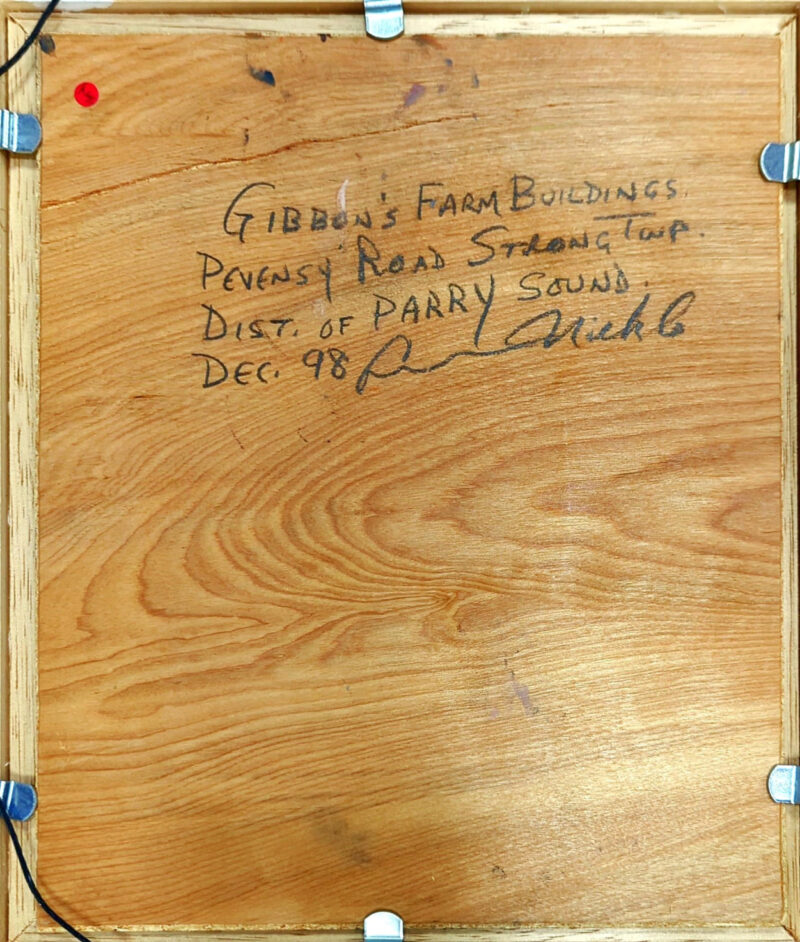 GIBBON'S FARM BUILDINGS.
PEVENSY ROAD STRONG TWP.
DIST. OF PARRY SOUND.
DEC. 98